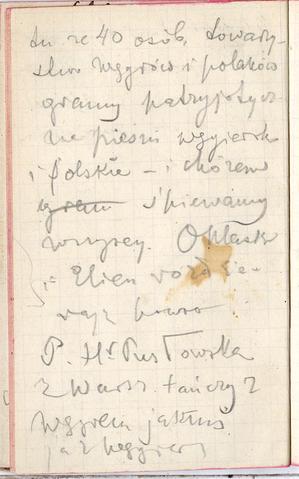 tu ze 40 osób, towarzy-
stwo węgrów i polaków
gramy patryjotycz
ne pieśni węgiersk
i polskie – i chórem
gram śpiewamy
wszyscy. Oklaski
i Elien
brawo
P. Hr
z Warsz. tańczy z
węgrem jakimś
ja z węgrem